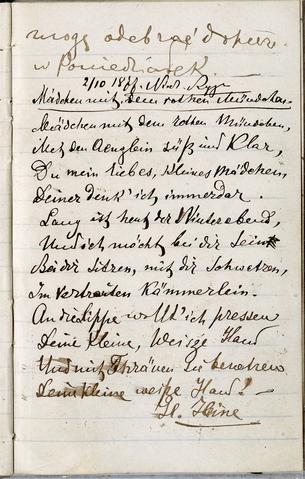 mogę odebrać dopiero
w Poniedziałek.
2/10
Mädchen mit dem rothen Mündchen
Mädchen mit dem rothen Mündchen,
Mit den Aeuglein süß und klar,
Du mein liebes, kleines Mädchen,
Deiner denk' ich immerdar.
Lang ist heut der Winterabend,
Und ich möcht bei dir sein
Bei dir sitzen, mit dir schwatzen,
Im vertrauten Kämmerlein.
An die Lippe wollt' ich pressen
Deine kleine, weisse Hand
Und mit Thränen sie benetzen
Deine kleine weiße Hand! –
H. Heine